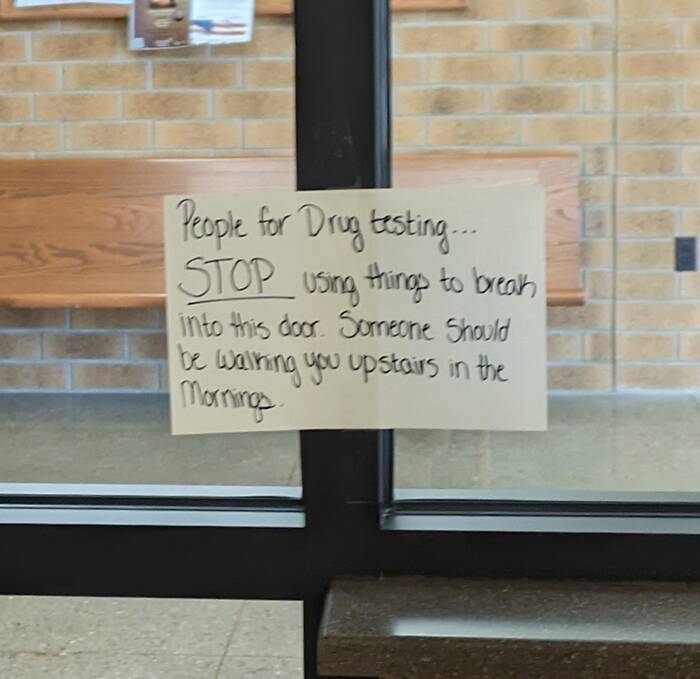 People for Drug testing...
STOP using things to break
into this door. Someone Should
be Walking you upstairs in the
Mornings.